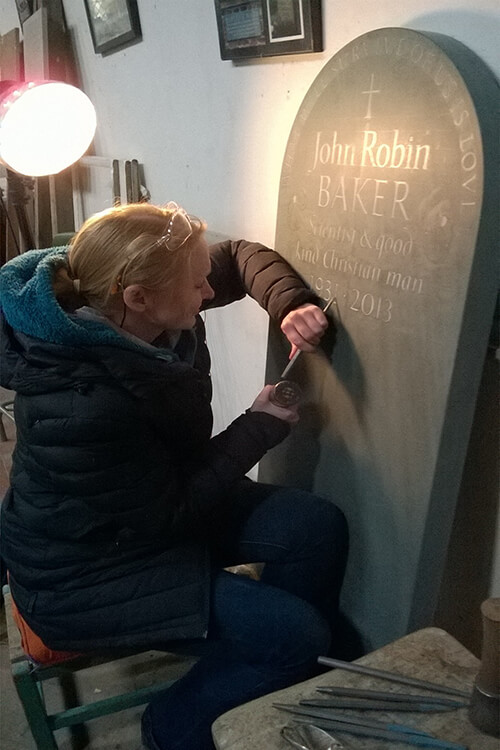 IS LOVE
John Robin
BAKER
Scientist & good
kind Christian man
1931-2013